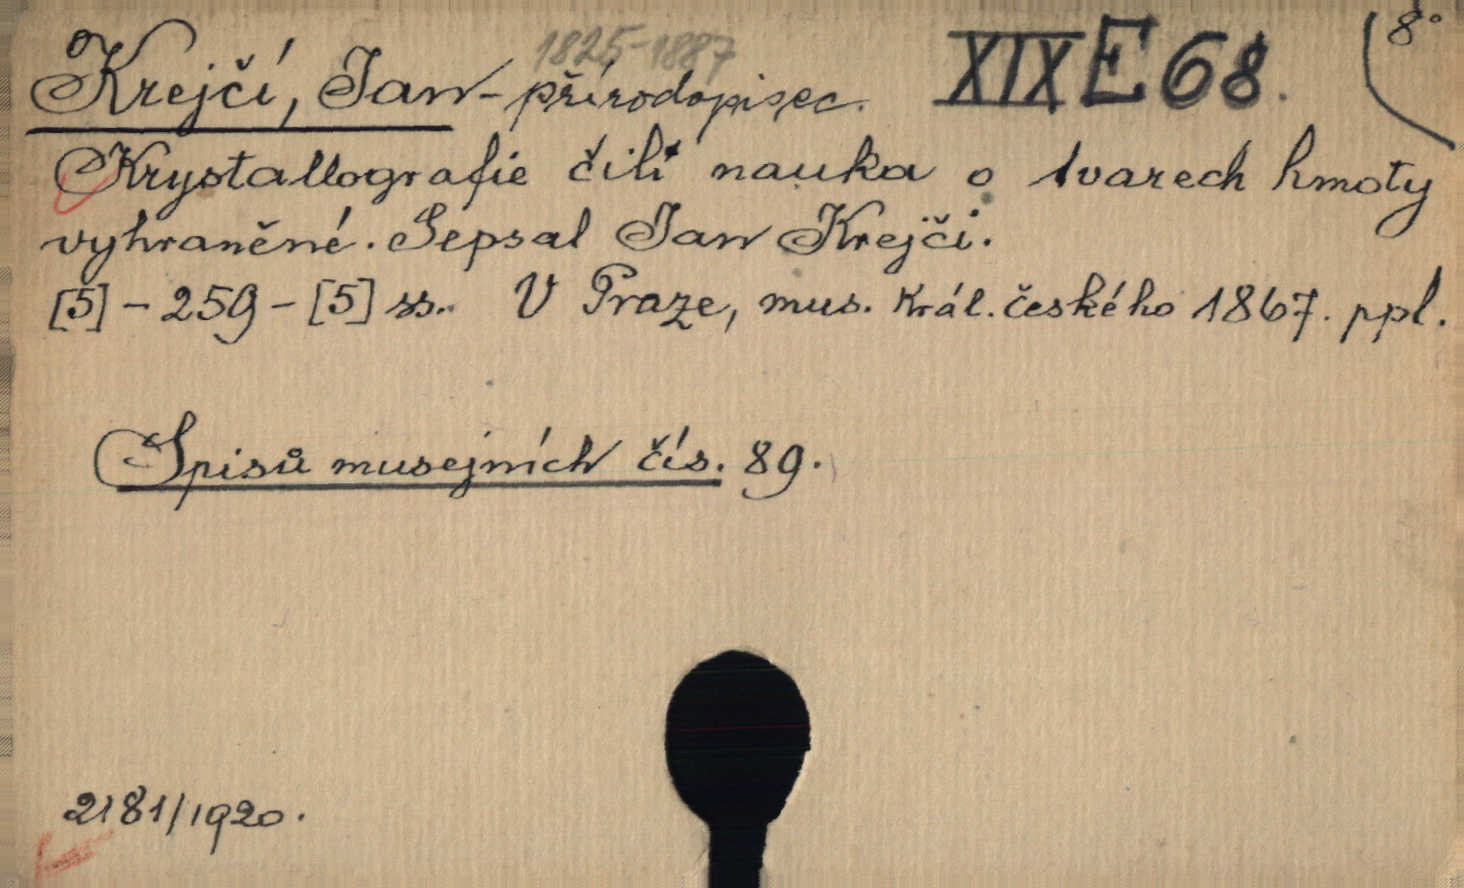 1825-1887
Krejčí, Jan - přírodopisec. XIX E 68. 8°
Krystallografie čili nauka o tvarech hmoty
vyhraněné. Sepsal Jan Krejčí.
[5] - 259 - [5] ss. V Praze, mus. král. českého 1867. ppl.
Spisů musejních čís. 89.
2181/1920.